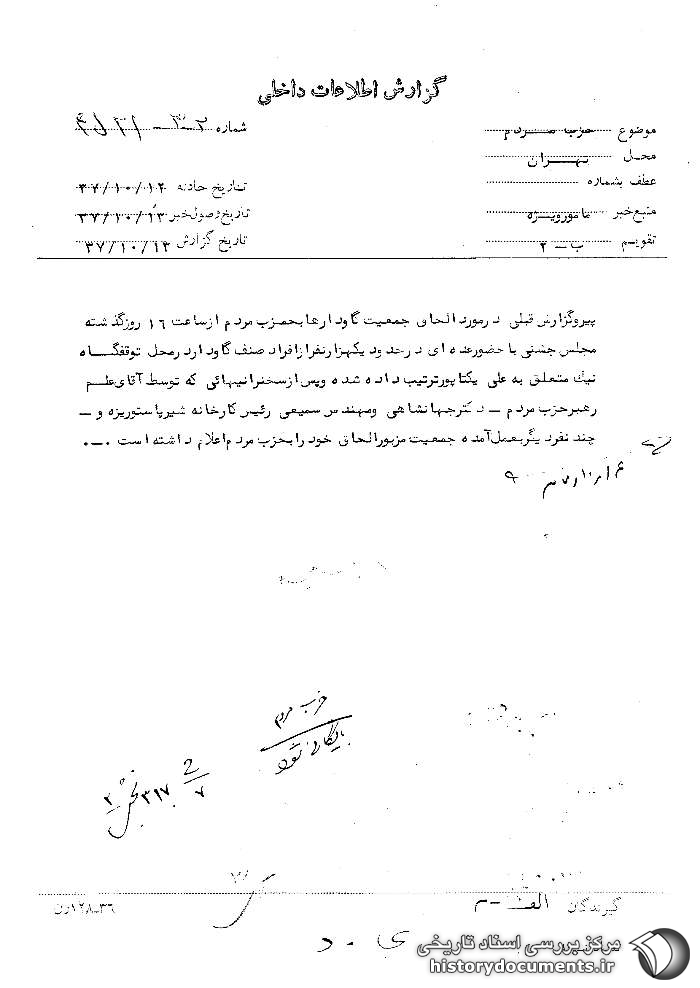 گزارش اطلاعات داخلی
موضوع حزب مردم
شماره
محل تهران
عطف بشماره
تاریخ حادثه ۳۷/۱۰/۱۲
منبع خبر مامور ویژه
تاریخ وصول خبر ۳۷/۱۰/۱۳
تقویم ب - ۲
تاریخ گزارش ۳۷/۱۰/۱۳
پیرو گزارش قبلی در مورد الحاق جمعیت گاودارها بحزب مردم از ساعت ۱۶ روز گذشته
مجلس جشنی با حضور عده ای در حدود یکهزار نفر از افراد صنف گاودار در محل توقفگاه
نیک متعلق به علی یکتاپور ترتیب داده شده و پس از سخنرانیهائی که توسط آقای علم
رهبر حزب مردم - دکتر جهانشاهی و مهندس سمیعی رئیس کارخانه شیر پاستوریزه و -
چند نفر دیگر بعمل آمده جمعیت مزبور الحاق خود را بحزب مردم اعلام داشته است ۰-۰
حزب مردم
بایگانی شود
۲/۷
گیرندگان الف - م
۳۶-۱۲۸ن
ی - د
مرکز بررسی اسناد تاریخی
historydocuments.ir